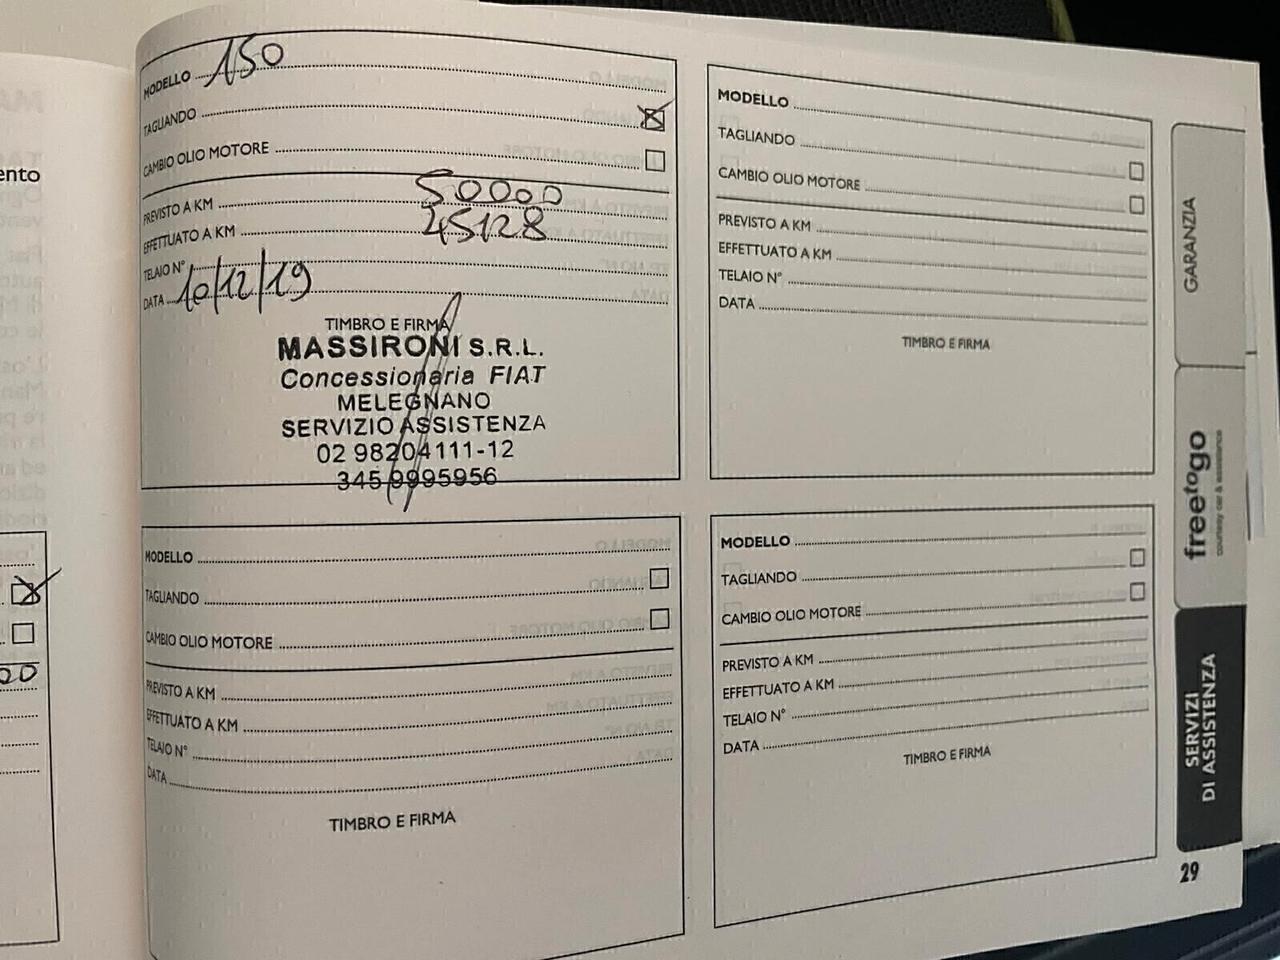 ento
00
MODELLO 150
TAGLIANDO
CAMBIO OLIO MOTORE
PREVISTO A KM 50000
EFFETTUATO A KM 45128
TELAIO N°
DATA 10/12/19
TIMBRO E FIRMA
MASSIRONI S.R.L.
Concessionaria FIAT
MELEGNANO
SERVIZIO ASSISTENZA
02 98204111-12
345 9995956
MODELLO
TAGLIANDO
CAMBIO OLIO MOTORE
PREVISTO A KM
EFFETTUATO A KM
TELAIO N°
DATA
TIMBRO E FIRMA
MODELLO
TAGLIANDO
CAMBIO OLIO MOTORE
PREVISTO A KM
EFFETTUATO A KM
TELAIO N°
DATA
TIMBRO E FIRMA
MODELLO
TAGLIANDO
CAMBIO OLIO MOTORE
PREVISTO A KM
EFFETTUATO A KM
TELAIO N°
DATA
TIMBRO E FIRMA
GARANZIA
freetogo
courtesy car & assistance
SERVIZI
DI ASSISTENZA
29